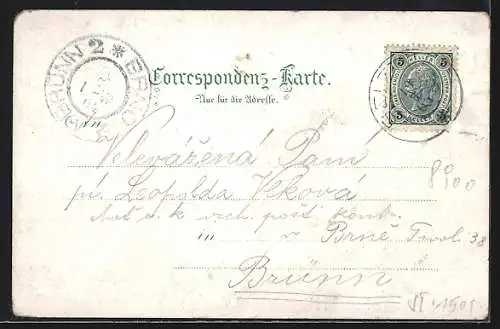 BRÜNN 2 * BRNO
Correspondenz-Karte.
Nur für die Adresse.
5 5
An
Velevážená Paní
pí. Leopolda Veková
c. k. vrch. pošt. kontr.
in v Brně Tivol. 38
Brünn